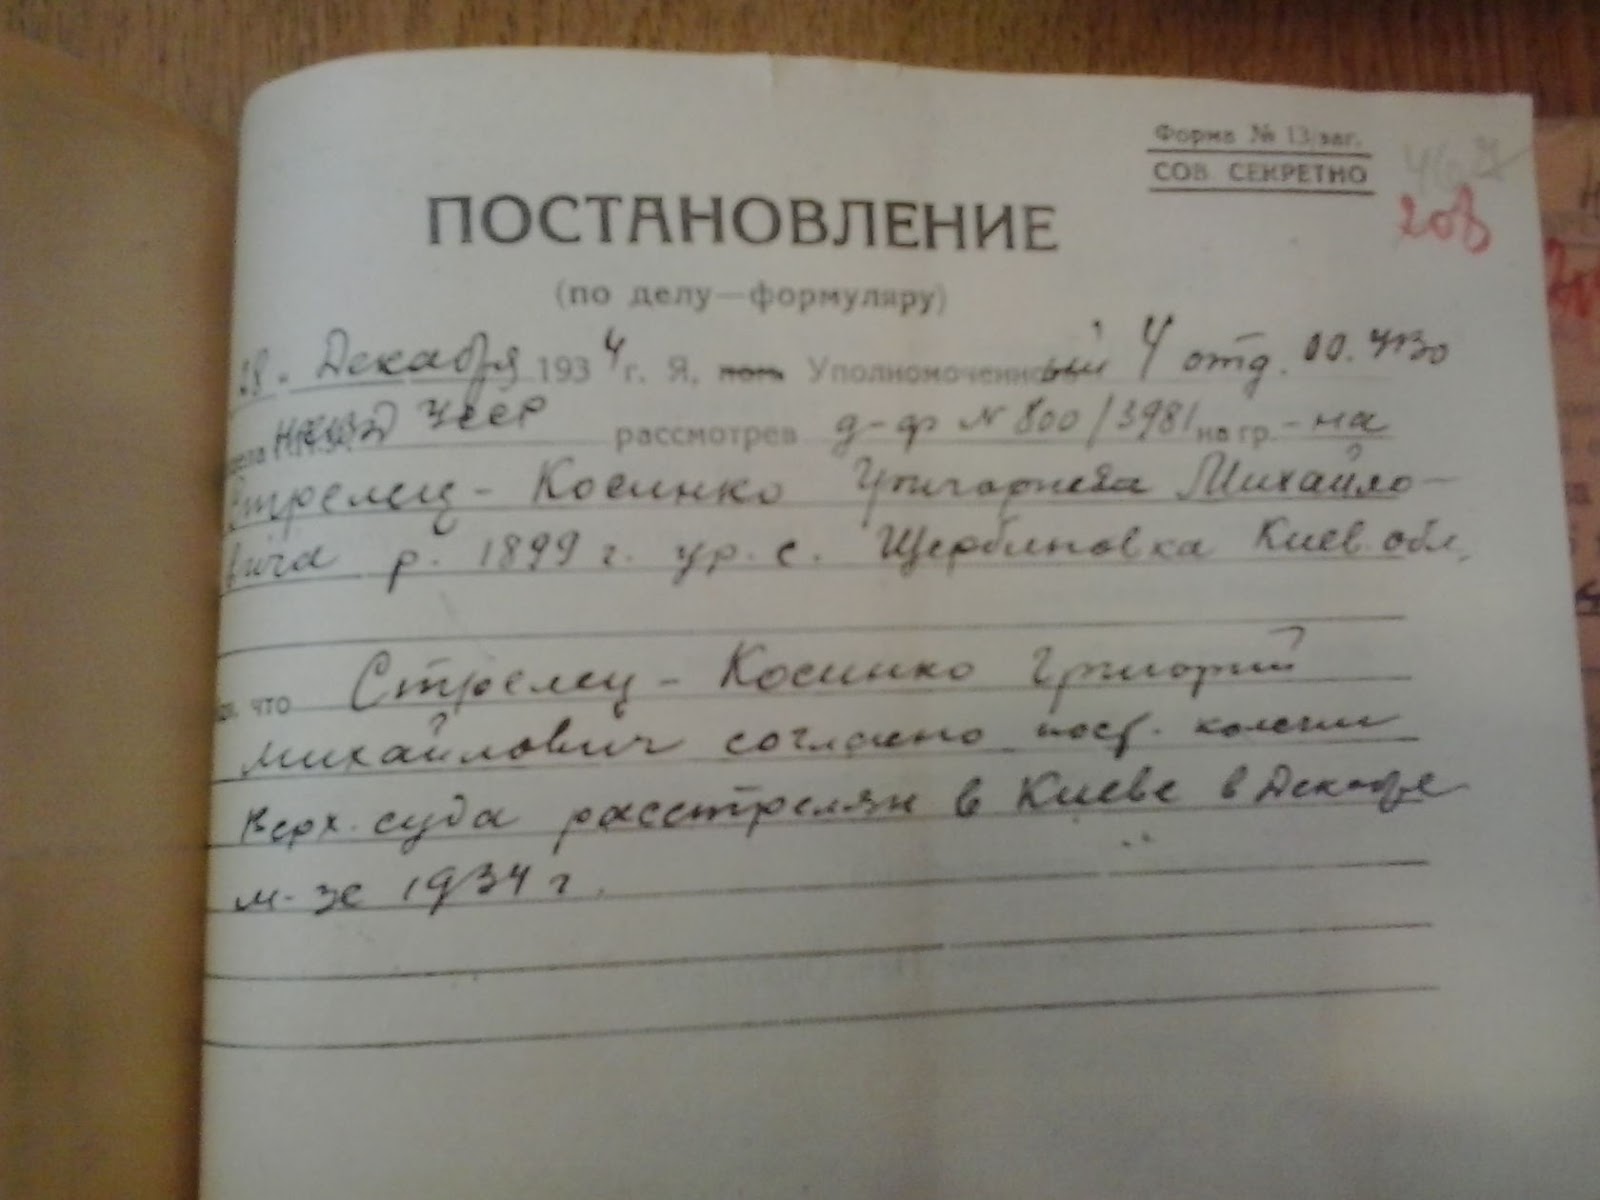 Форма № 13/заг.
СОВ. СЕКРЕТНО
208
ПОСТАНОВЛЕНИЕ
(по делу—формуляру)
28. Декабря 1934 г. Я, пом. Уполномоченный 4 отд. ОО. УГБ
НКВД УССР рассмотрев д-ф № 800/3981 на гр.-на
Стрелец - Косинко Григория Михайло-
вича р. 1899 г. ур. с. Щербиновка Киев. обл.
что Стрелец - Косинко Григорий
Михайлович согласно пост. колегии
Верх. суда расстрелян в Киеве в Декабре
м-це 1934 г.